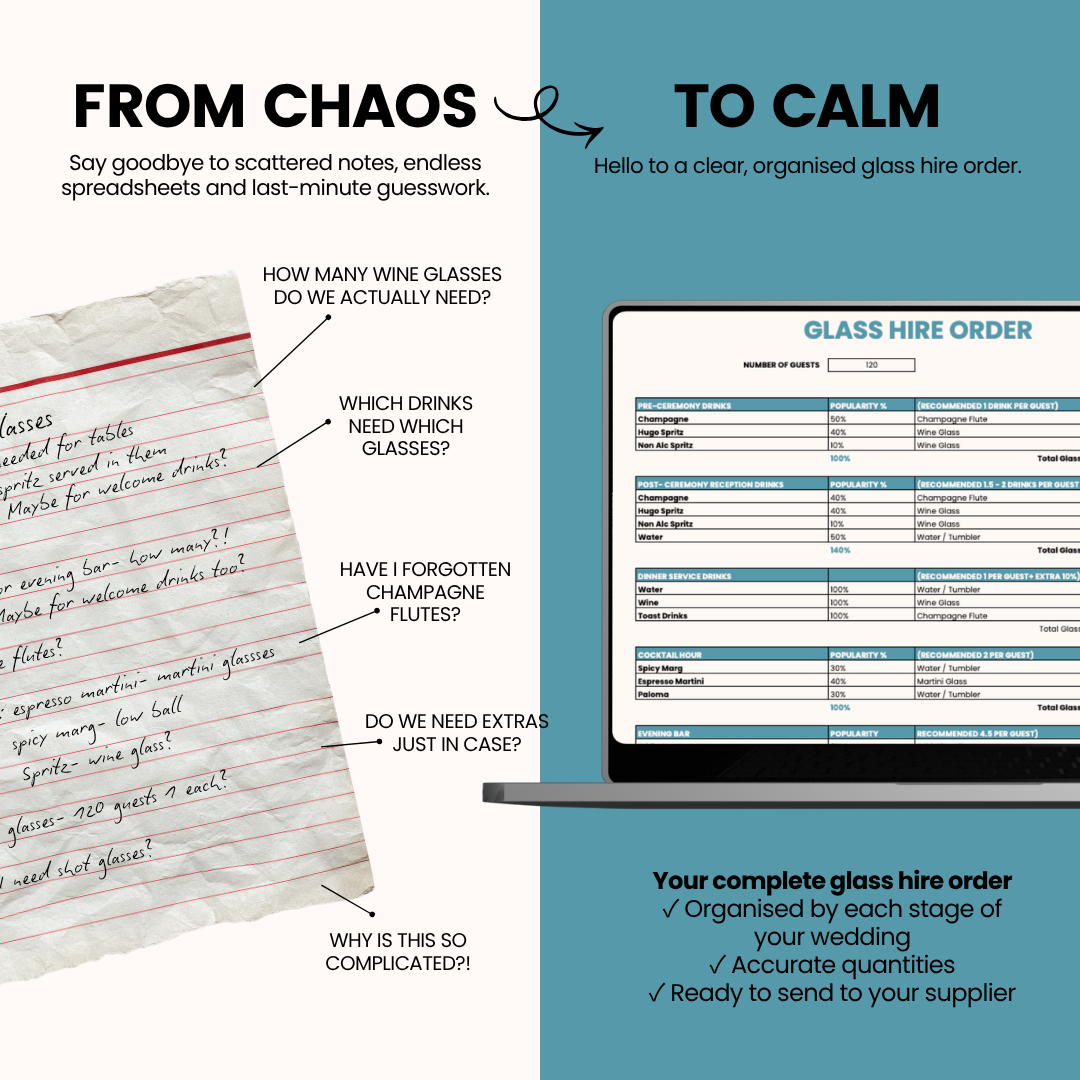 FROM CHAOS
Say goodbye to scattered notes, endless
spreadsheets and last-minute guesswork.
HOW MANY WINE GLASSES
DO WE ACTUALLY NEED?
WHICH DRINKS
NEED WHICH
GLASSES?
HAVE I FORGOTTEN
CHAMPAGNE
FLUTES?
DO WE NEED EXTRAS
JUST IN CASE?
WHY IS THIS SO
COMPLICATED?!
lasses
eeded for tables
spritz served in them
Maybe for welcome drinks?
or evening bar- how many?!
Maybe for welcome drinks too?
e flutes?
: espresso martini- martini glassses
spicy marg- low ball
Spritz- wine glass?
glasses- 120 guests 1 each?
I need shot glasses?
TO CALM
Hello to a clear, organised glass hire order.
GLASS HIRE ORDER
NUMBER OF GUESTS 120
PRE-CEREMONY DRINKS POPULARITY % (RECOMMENDED 1 DRINK PER GUEST)
Champagne 50% Champagne Flute
Hugo Spritz 40% Wine Glass
Non Alc Spritz 10% Wine Glass
100% Total Glass
POST- CEREMONY RECEPTION DRINKS POPULARITY % (RECOMMENDED 1.5 - 2 DRINKS PER GUEST
Champagne 40% Champagne Flute
Hugo Spritz 40% Wine Glass
Non Alc Spritz 10% Wine Glass
Water 50% Water / Tumbler
140% Total Glass
DINNER SERVICE DRINKS (RECOMMENDED 1 PER GUEST+ EXTRA 10%)
Water 100% Water / Tumbler
Wine 100% Wine Glass
Toast Drinks 100% Champagne Flute
Total Glass
COCKTAIL HOUR POPULARITY % (RECOMMENDED 2 PER GUEST)
Spicy Marg 30% Water / Tumbler
Espresso Martini 40% Martini Glass
Paloma 30% Water / Tumbler
100% Total Glass
EVENING BAR POPULARITY RECOMMENDED 4.5 PER GUEST)
Your complete glass hire order
✓ Organised by each stage of
your wedding
✓ Accurate quantities
✓ Ready to send to your supplier